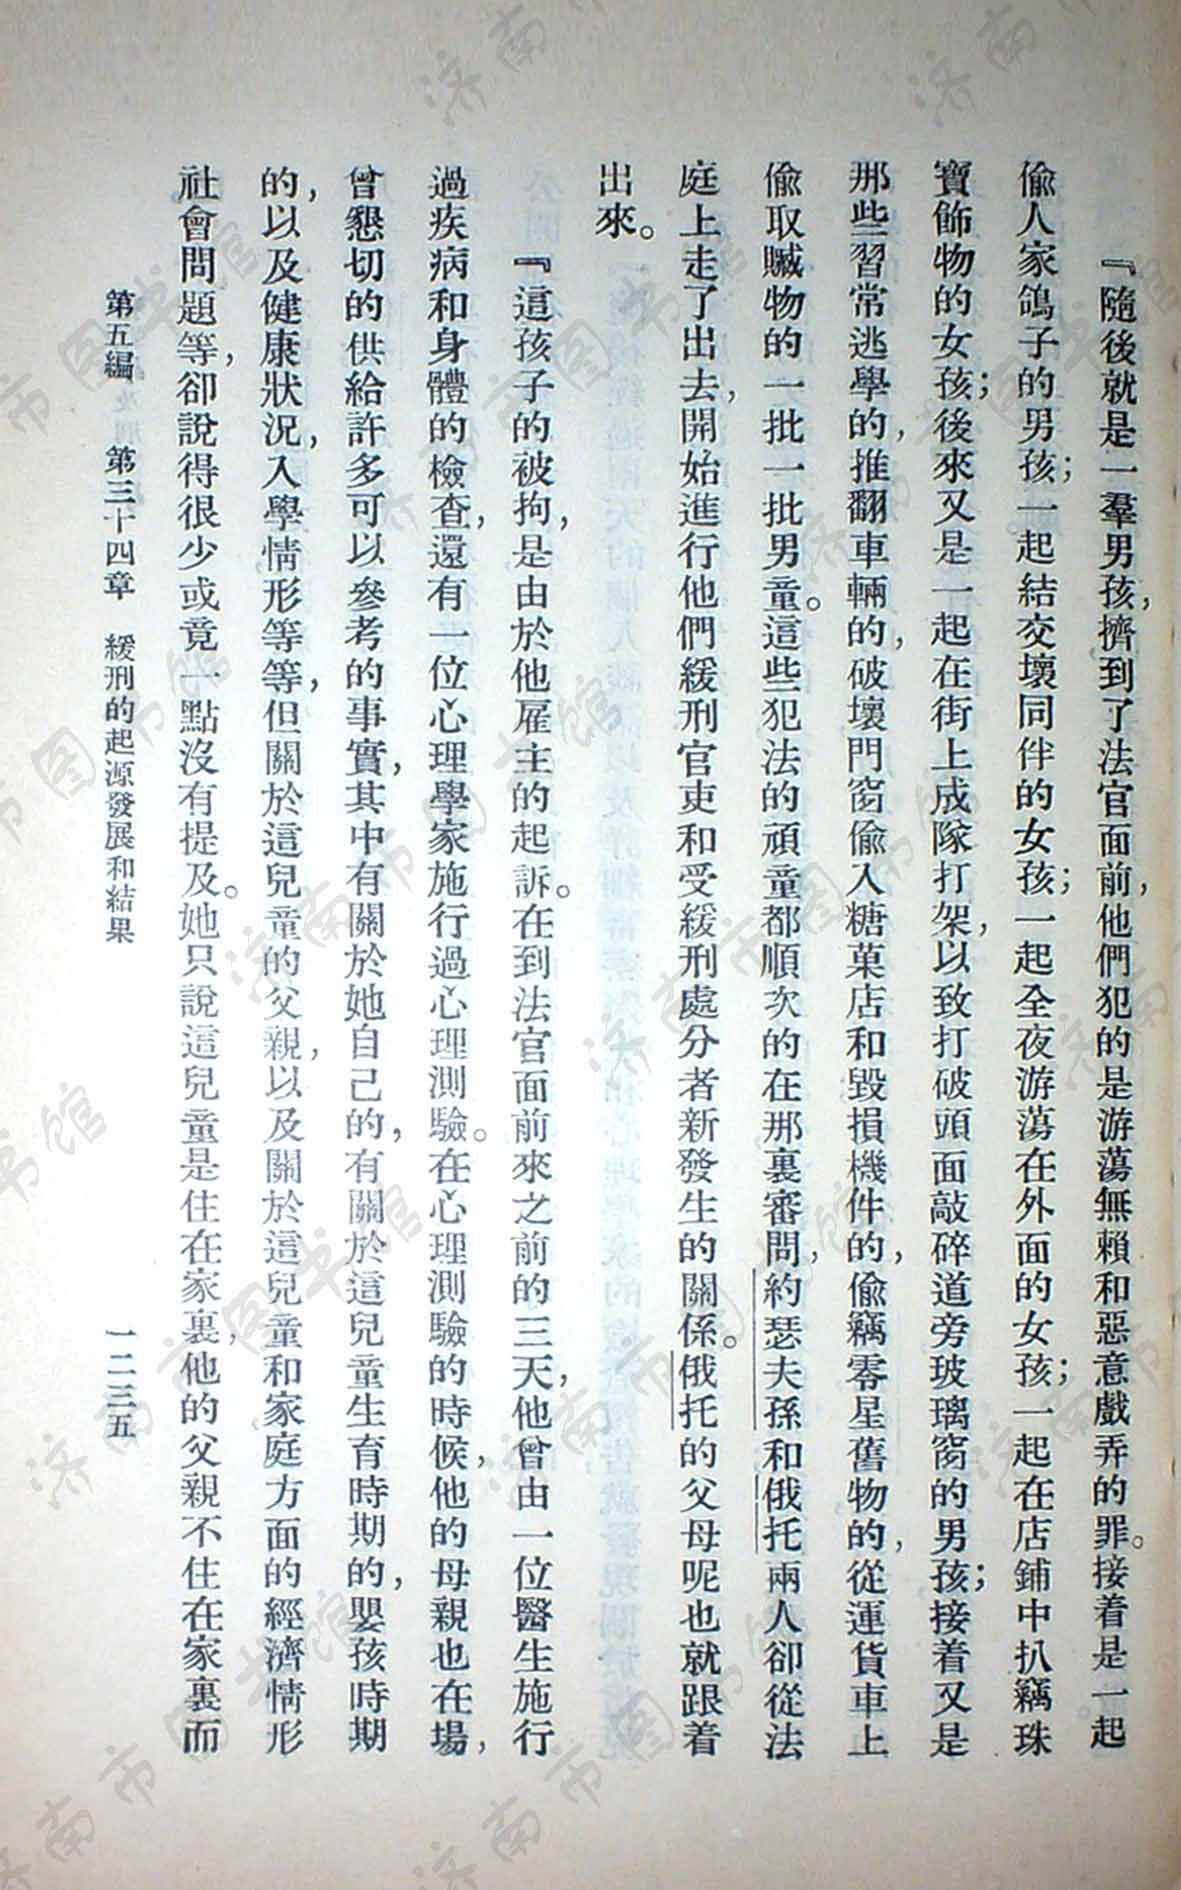 『隨後就是一羣男孩，擠到了法官面前，他們犯的是游蕩無賴和惡意戲弄的罪。接着是一起
偸人家鴿子的男孩；一起結交壞同伴的女孩；一起全夜游蕩在外面的女孩；一起在店鋪中扒竊珠
寶飾物的女孩；後來又是一起在街上成隊打架，以致打破頭面敲碎道旁玻璃窗的男孩；接着又是
那些習常逃學的，推翻車輛的，破壞門窗偸入糖菓店和毀損機件的，偸竊零星舊物的，從運貨車上
偸取贓物的一批一批男童。這些犯法的頑童都順次的在那裏審問，約瑟夫孫和俄托兩人卻從法
庭上走了出去，開始進行他們緩刑官吏和受緩刑處分者新發生的關係。俄托的父母呢也就跟着
出來。
『這孩子的被拘，是由於他雇主的起訴。在到法官面前來之前的三天，他曾由一位醫生施行
過疾病和身體的檢查，還有一位心理學家施行過心理測驗。在心理測驗的時候，他的母親也在場，
曾懇切的供給許多可以參考的事實，其中有關於她自己的，有關於這兒童生育時期的，嬰孩時期
的，以及健康狀況，入學情形等等，但關於這兒童的父親，以及關於這兒童和家庭方面的經濟情形
社會問題等，卻說得很少或竟一點沒有提及。她只說這兒童是住在家裏，他的父親不住在家裏而
第五編　第三十四章　緩刑的起源發展和結果　一二三五
济南市图书馆